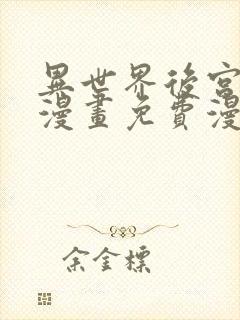 異世界後宮
漫畫免費漫
余金標